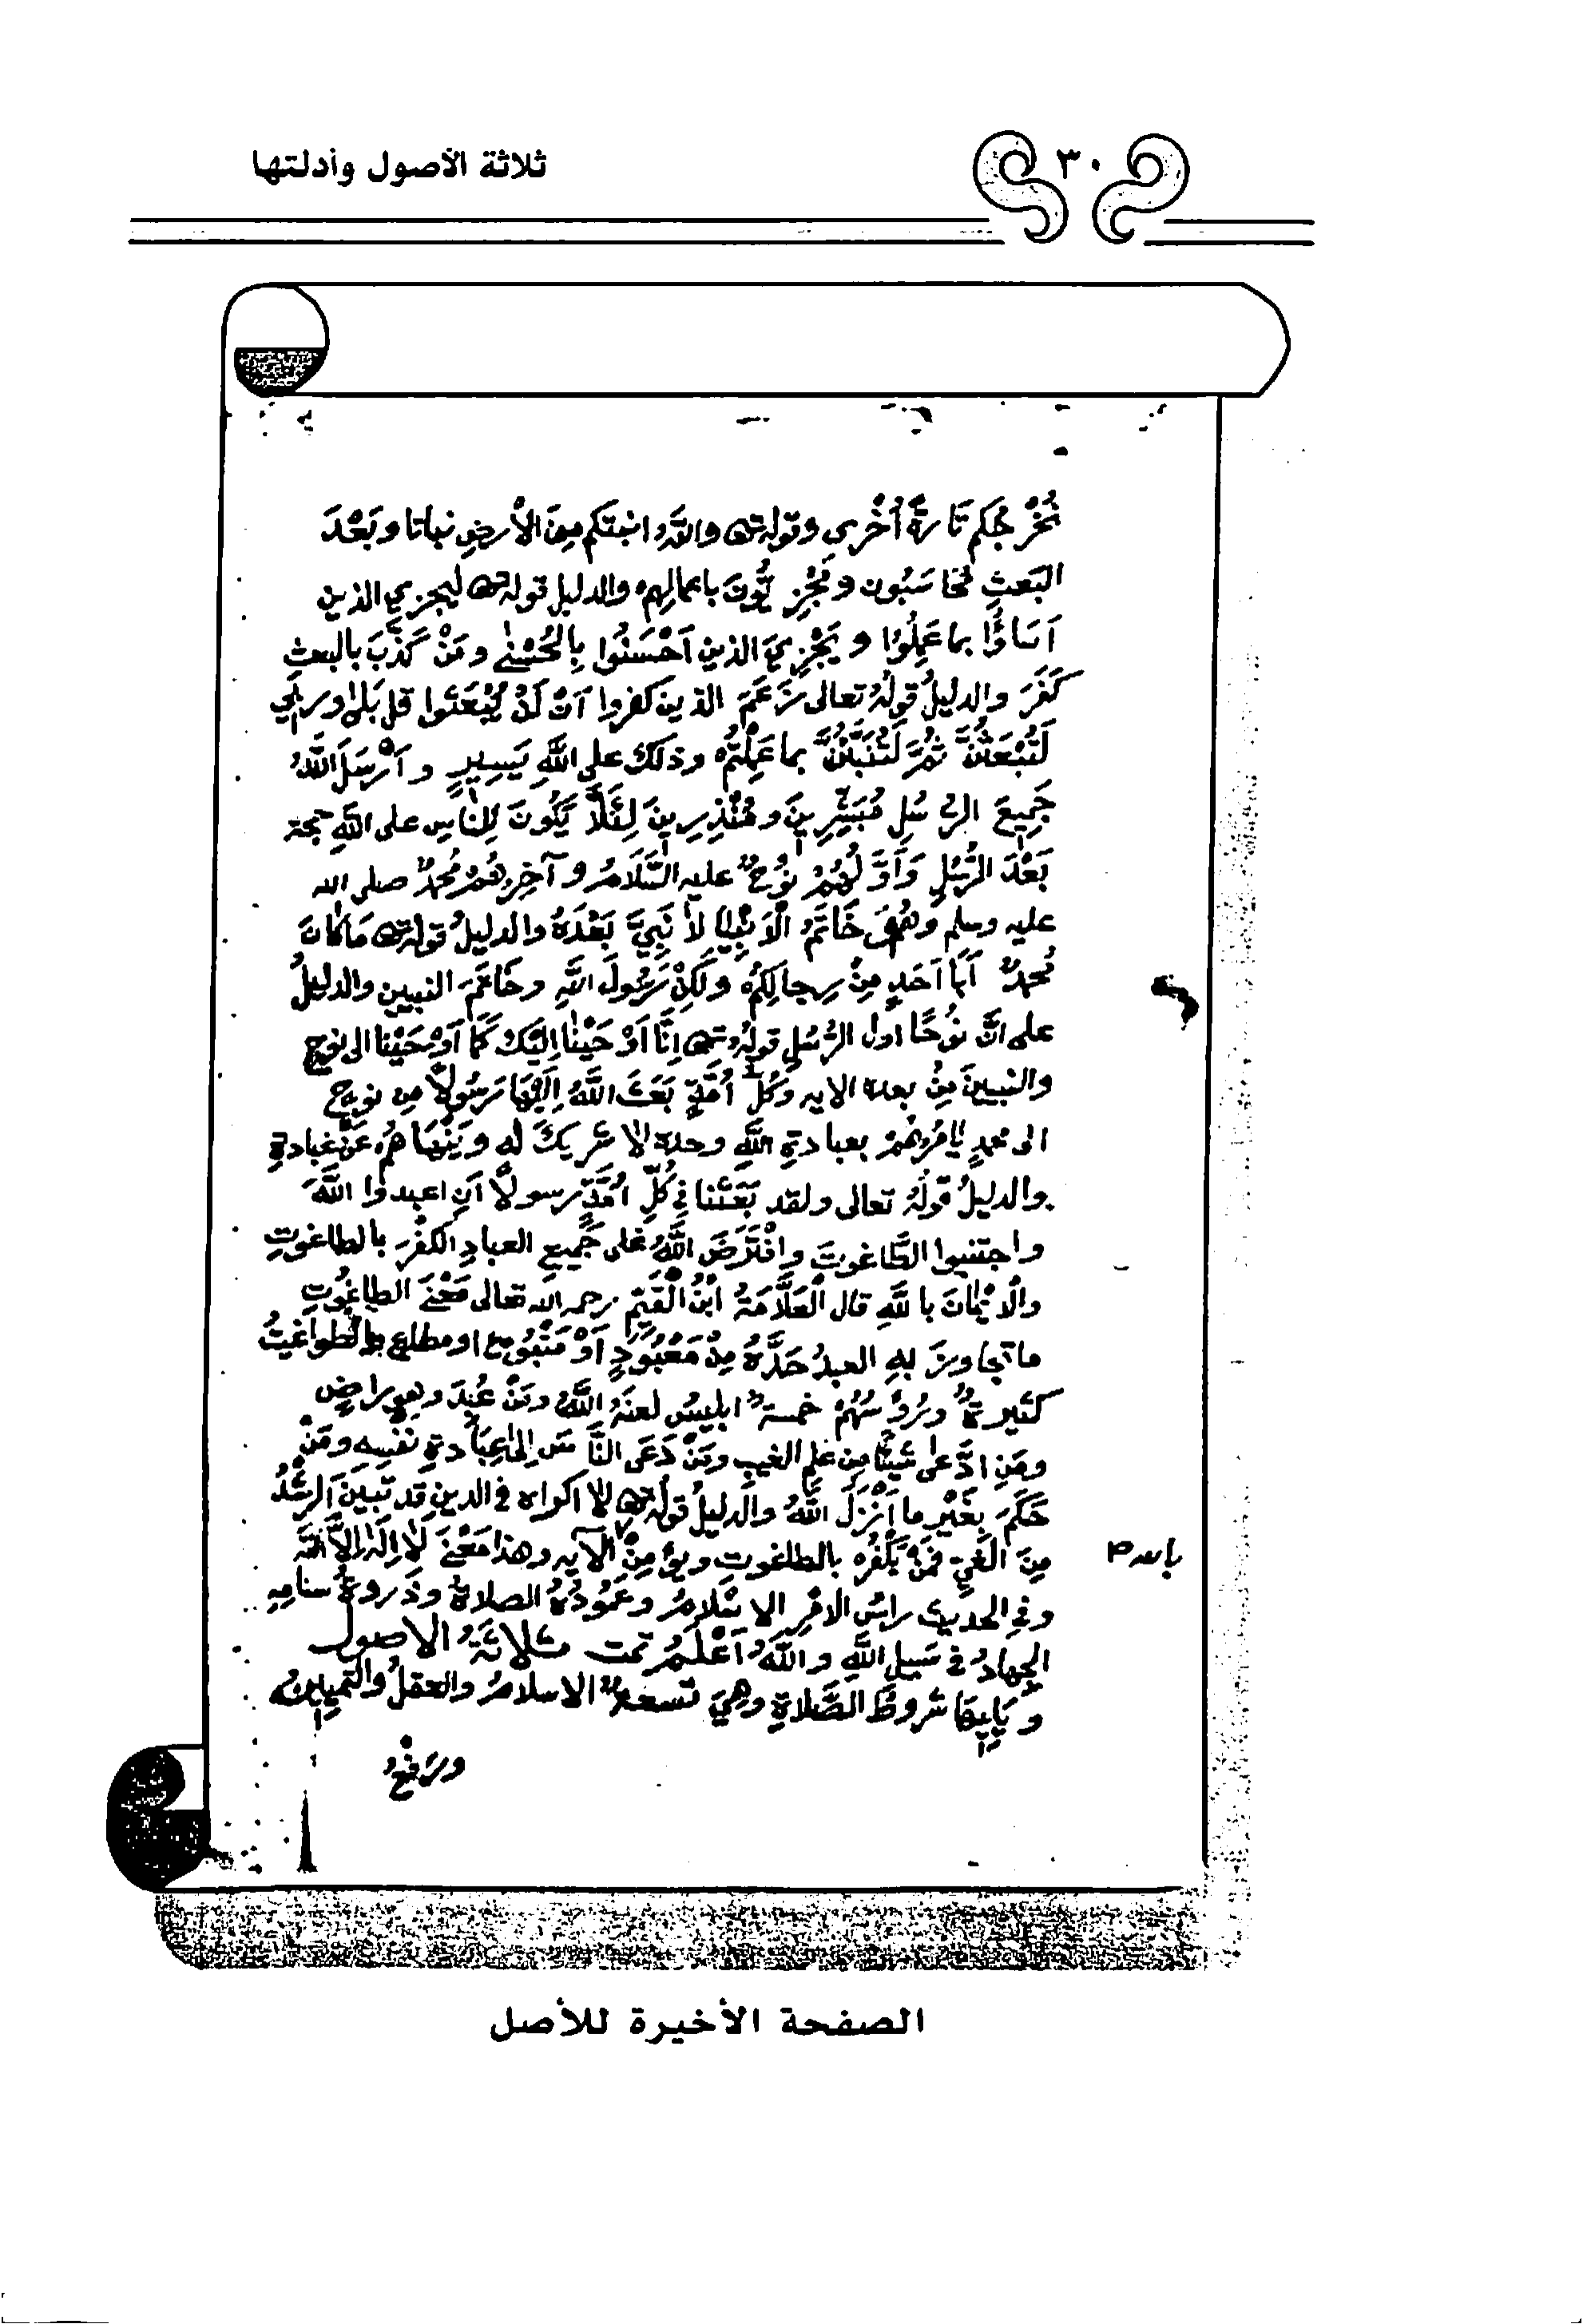 ٣٠
ثلاثة الأصول وأدلتها
نُخْرِجُكم تَارَةً أُخْرى وقوله تعـ والله انبتكم مِنَ الأرضِ نباتا وبَعْدَ
البَعثِ مُحَاسَبُون ومُجْزِيُّونَ باعمالِهم والدليل قوله تعـ ليجزي الذين
اَسَاؤُا بما عَمِلُوا ويَجْزِيَ الذين اَحْسَنُوا بِالحُسْنىٰ ومَنْ كَذَّبَ بالبعثِ
كَفَرَ والدليلُ قولُهُ تعالى زَعَمَ الذين كفروا اَنْ لَنْ يُبْعَثُوا قل بَلىٰ وربي
لَتُبْعَثُنَّ ثُمَّ لَتُنَبَّئُنَّ بما عَمِلْتُم وذلك على اللَّهِ يَسِيرٍ واَرْسَلَ اللَّهُ
جَمِيعَ الرُسُلِ مُبَشِّرِينَ ومُنْذِرِينَ لِئَلَّا يَكُونَ لِلنَاسِ على اللَّهِ حجة
بَعْدَ الرُّسُلِ وَاَوَّلُهُمْ نُوحٌ عليه السَّلَامُ وآخِرهُمْ مُحمدٌ صلى الله
عليه وسلم وهُوَ خَاتَمُ الْاَنْبِيَا لاَ نَبِيَّ بَعْدَهُ والدليلُ قوله تعـ مَا كَانَ
مُحمدٌ اَبَا اَحَدٍ مِنْ رِجالِكُم ولَكِنْ رَسُولَ اللَّهِ وخَاتَمَ النبيين والدليلُ
على اَنَّ نُوحًا اول الرُسُلِ قولُهُ تعـ اِنَّا اَوْحَيْنَا اِلَيْكَ كَمَا اَوْحَيْنَا الى نوحٍ
والنبيينَ مِنْ بعده الايه وكُلُّ اُمَّةٍ بَعَثَ اللَّهُ اِلَيْهَا رَسُولاً مِن نوحٍ
الى محمدٍ يَامُرُهُمْ بعبادةِ اللَّهِ وحده لا شَرِيكَ له ويَنْهَاهُم عَنْ عِبادةِ
والدليلُ قَولُهُ تعالى ولقد بَعَثنا في كُلِّ اُمَّةٍ رسولاً اَنِ اعبدوا اللَّهَ
واجتنبوا الطَّاغوتَ وافْتَرَضَ اللَّهُ على جَميعِ العبادِ الكُفْرَ بالطاغوتِ
والْاِيْمَانَ باللَّهِ قال الْعَلَّامَةُ ابْنُ الْقَيِّمِ رحمه الله تعالى مَعْنَى الطاغُوتِ
ما تجاوزَ بهِ العبدُ حَدَّهُ مِنْ مَعْبُودٍ اَوْ مَتْبُوعٍ او مطاع والطواغيتُ
كثيرةٌ ورُؤسُهُمْ خمسةٌ ابليسُ لعنَهُ اللَّهُ ومَنْ عُبِدَ وهو راضٍ
ومَنِ ادَّعى شَيْئًا مِن علمِ الغيبِ ومَنْ دَعَى النَّاسَ اِلى عِبَادةِ نفسِهِ ومَنْ
حَكَمَ بِغَيْرِ ما اَنْزَلَ اللَّهُ والدليلُ قولُه تعـ لا اكراه في الدينِ قد تَبَيَنَ الرُشْدُ
مِنَ الْغَيِّ فَمَنْ يَكْفُر بالطاغوتِ ويؤمِنْ الآيه وهذا مَعْنى لَا اِلَهَ اِلاَّ اللَّه
بالله صح
وفي الحديث راسُ الامْرِ الاسْلامُ وعَمُودُهُ الصلاةُ وذروةُ سنامِهِ
الجِهادُ في سَبيلِ اللَّهِ واللَّهُ اَعْلَمُ تمت ثلاثةُ الاصول
ويَلِيهَا شُروطُ الصَّلاةِ وهِيَ تسعةٌ الاسلامُ والعقلُ والتمييزُ
ورَفْعُ
الصفحة الأخيرة للأصل